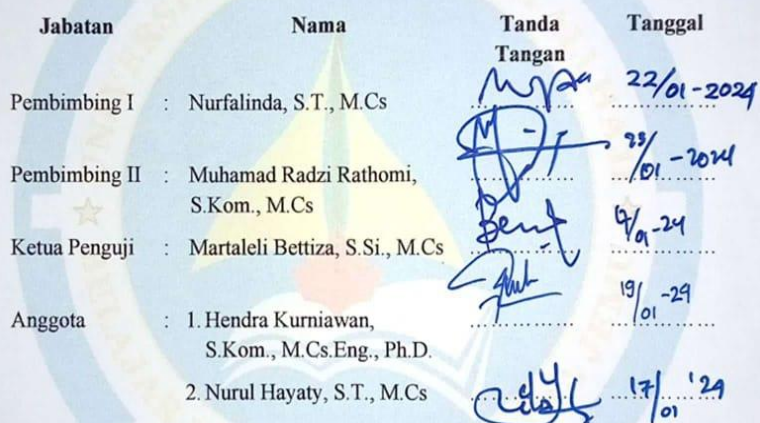 Jabatan Nama Tanda Tanggal
Tangan
Pembimbing I : Nurfalinda, S.T., M.Cs 22/01-2024
Pembimbing II : Muhamad Radzi Rathomi, 23/01-2024
S.Kom., M.Cs
Ketua Penguji : Martaleli Bettiza, S.Si., M.Cs
19/01-24
Anggota : 1. Hendra Kurniawan,
S.Kom., M.Cs.Eng., Ph.D.
2. Nurul Hayaty, S.T., M.Cs 17/01 '24